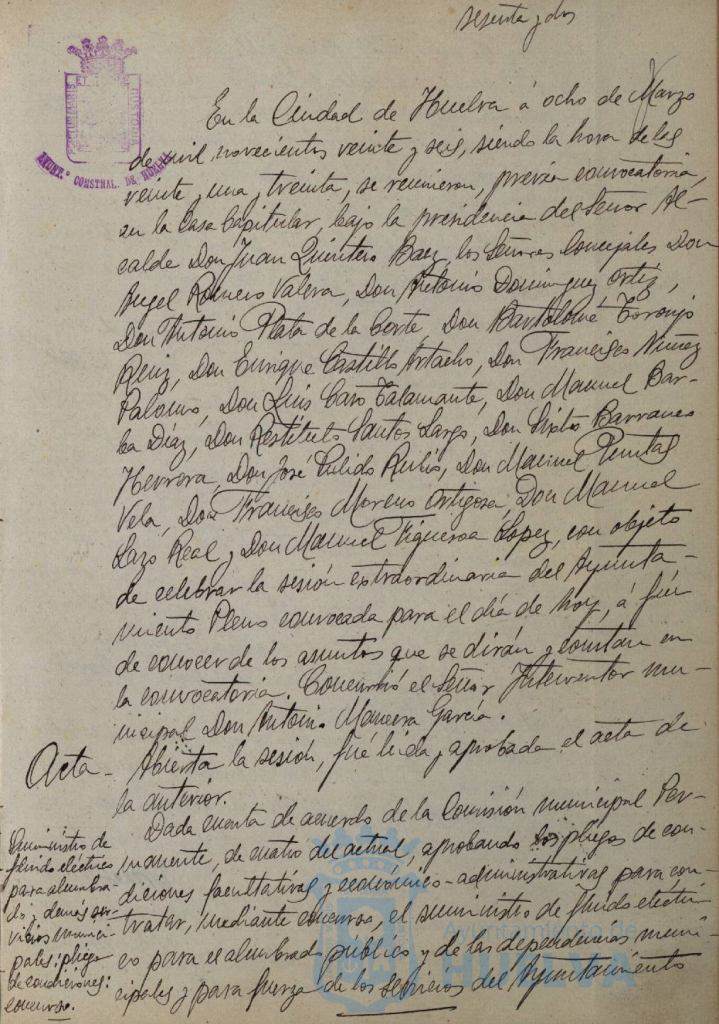 sesenta y dos
AYUNT.º CONSTNAL. DE HUELVA
En la Ciudad de Huelva á ocho de Marzo
de mil novecientos veinte y seis, siendo la hora de las
veinte y una y treinta, se reunieron, previa convocatoria,
en la Casa Capitular, bajo la presidencia del Señor Al-
calde Don Juan Quintero Baez, los Señores Concejales Don
Angel Romero Valera, Don Antonio Dominguez Ortiz,
Don Antonio Plata de la Corte, Don Bartolomé Toronjo
Reniz, Don Enrique Castillo Artacho, Don Francisco Nuñez
Palomo, Don Luis Caro Talamante, Don Manuel Bar-
ba Díaz, Don Restituto Santos Largo, Don Sixto Barranco
Herrera, Don José Pulido Rubio, Don Manuel
Vela, Don Francisco Moreno Ortigosa, Don Manuel
Lazo Real y Don Manuel Figueroa Lopez, con objeto
de celebrar la sesión extraordinaria del Ayunta-
miento Pleno convocada para el día de hoy, á fin
de conocer de los asuntos que se dirán y constan en
la convocatoria. Concurrió el Señor Interventor mu-
nicipal Don Antonio Mancera García.
Acta - Abierta la sesión, fué leida y aprobada el acta de
la anterior.
Dada cuenta de acuerdo de la Comisión municipal Per-
manente, de cuatro del actual, aprobando los pliegos de con-
diciones facultativas y económico-administrativas para con-
tratar, mediante concurso, el suministro de fluido eléctri-
co para el alumbrado público y de las dependencias muni-
cipales y para fuerza de los servicios del Ayuntamiento
Suministro de
fluido eléctrico
para alumbra-
do y demás ser-
vicios munici-
pales: pliego
de condiciones:
concurso.
Ayuntamiento de
HUELVA